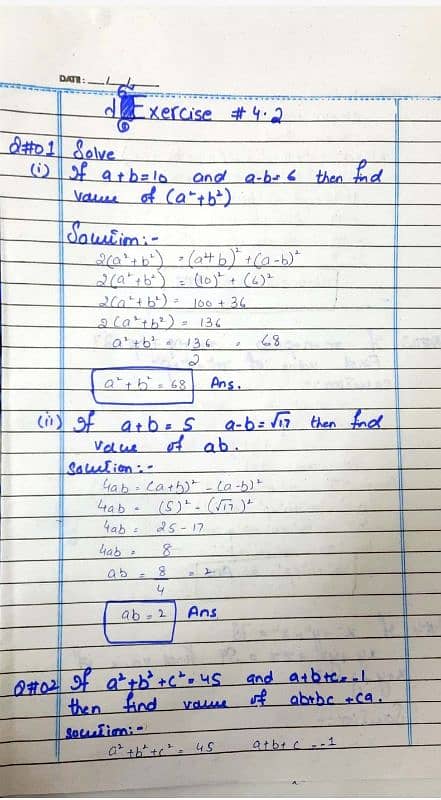 DATE:
Exercise # 4.2
Q#01 Solve
(i) If a+b=10 and a-b=6 then find
value of (a²+b²)
Solution:-
2(a²+b²) = (a+b)² + (a-b)²
2(a²+b²) = (10)² + (6)²
2(a²+b²) = 100 + 36
2(a²+b²) = 136
a²+b² = 136/2 = 68
a²+b² = 68 Ans.
(ii) If a+b=5 a-b=√17 then find
value of ab.
Solution:-
4ab = (a+b)² - (a-b)²
4ab = (5)² - (√17)²
4ab = 25-17
4ab = 8
ab = 8/4 = 2
ab = 2 Ans
Q#02 If a²+b²+c²=45 and a+b+c=-1
then find value of ab+bc+ca.
Solution:-
a²+b²+c² = 45 a+b+c = -1